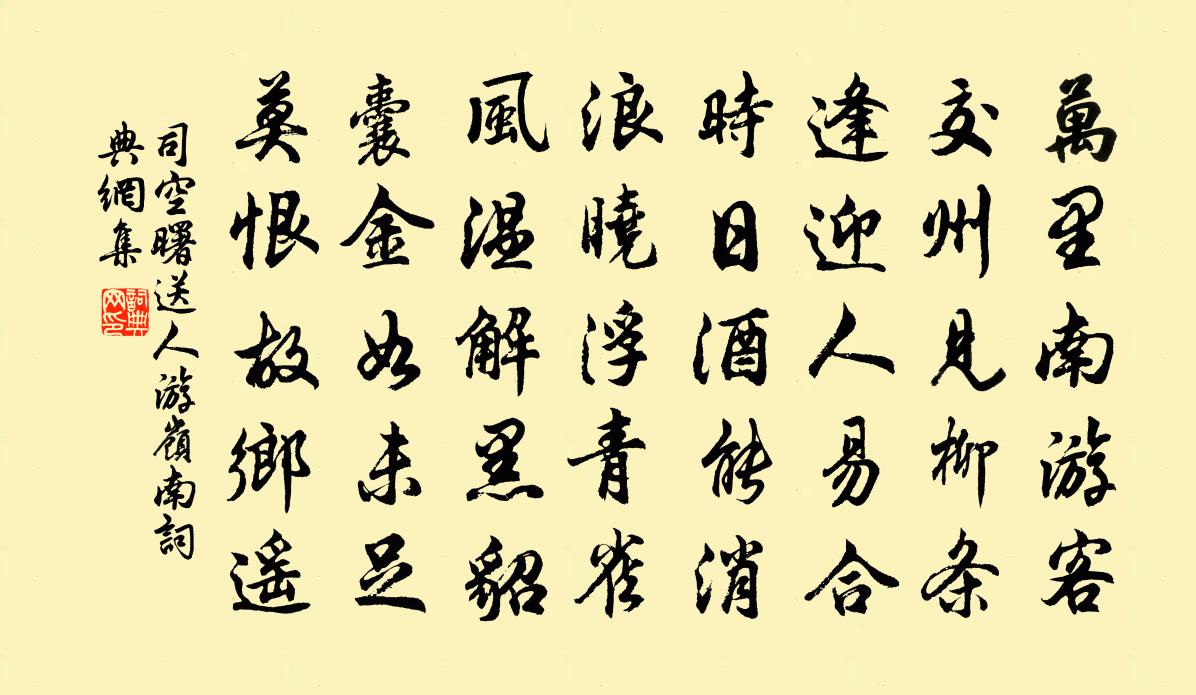 萬里南游客
交州見柳条
逢迎人易合
時日酒能消
浪曉浮青雀
風温解黑貂
囊金如未足
莫恨故鄉遥
司空曙送人游嶺南詞
典網集
詞典
网印